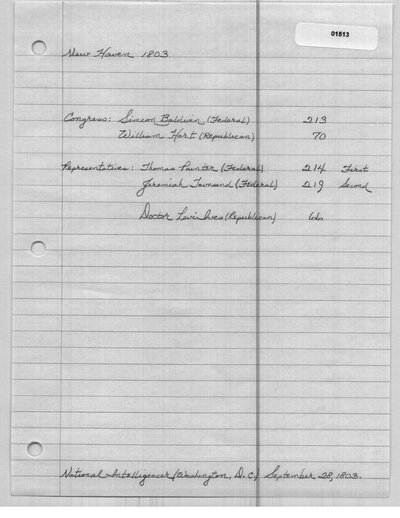 01513
New Haven 1803
Congress: Simeon Baldwin (Federal) 213
William Hart (Republican) 70
Representatives: Thomas Painter (Federal) 214 First
Jeremiah Townsend (Federal) 219 Second
Doctor Levi Ives (Republican) 66
National Intelligencer (Washington, D.C.) September 28, 1803.